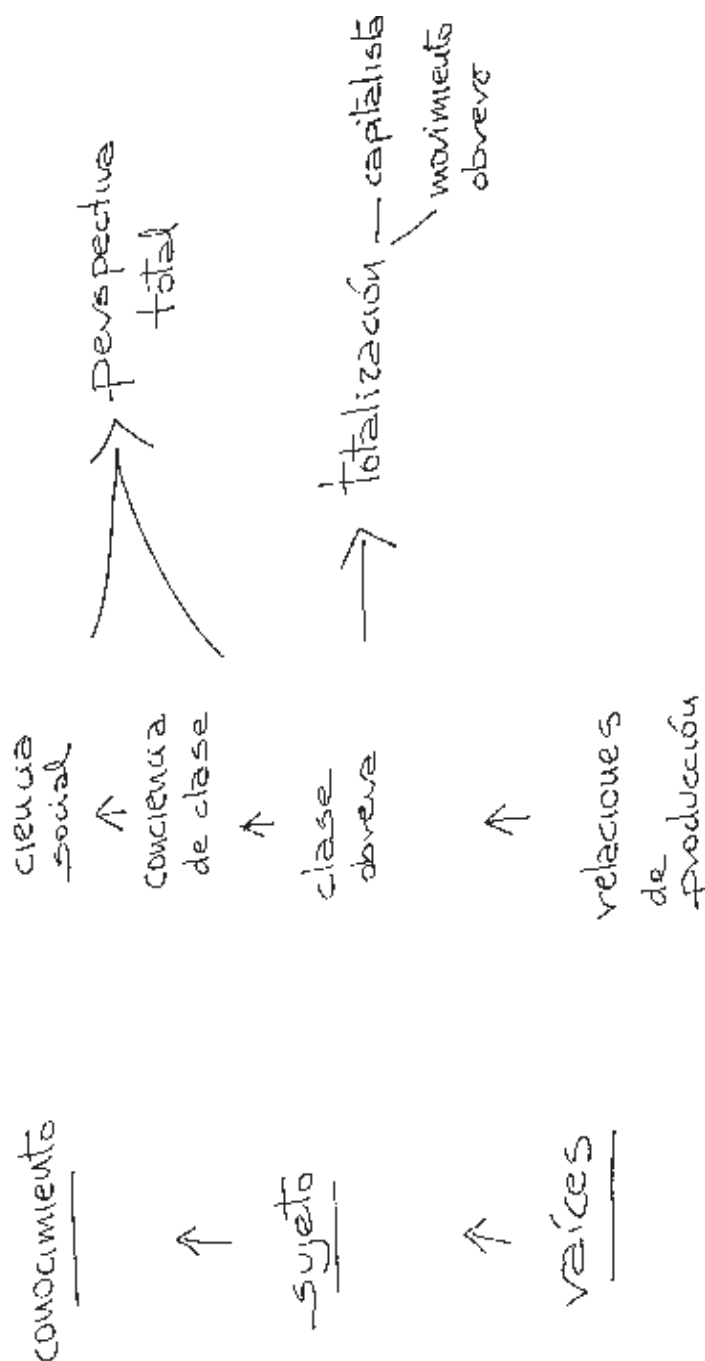 conocimiento
sujeto
raíces
ciencia
social
conciencia
de clase
clase
obrera
relaciones
de
producción
perspectiva
total
totalización — capitalista
movimiento
obrero